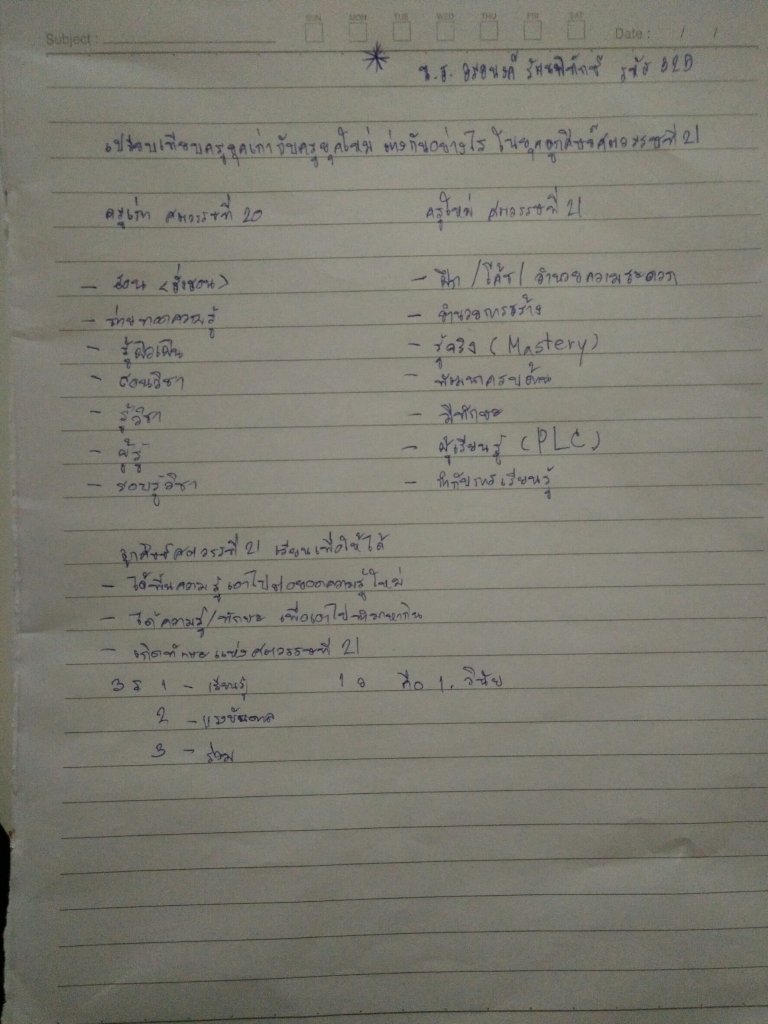 SUN MON TUE WED THU FRI SAT
Subject : Date : / /
น.ส. รหัส 32D
เปรียบเทียบครูยุคเก่ากับครูยุคใหม่ ต่างกันอย่างไร ในยุคลูกศิษย์ศตวรรษที่ 21
ครูเก่า ศตวรรษที่ 20 ครูใหม่ ศตวรรษที่ 21
- สอน (สั่งสอน) - ฝึก / โค้ช / อำนวยความสะดวก
- ถ่ายทอดความรู้ - อำนวยการสร้าง
- รู้ผิวเผิน - รู้จริง (Mastery)
- สอนวิชา - พัฒนาครบด้าน
- รู้วิชา - มีทักษะ
- ผู้รู้ - ผู้เรียนรู้ (PLC)
- รอบรู้วิชา - กำกับการเรียนรู้
ลูกศิษย์ศตวรรที่ 21 เรียนเพื่อให้ได้
- ได้พื้นความรู้ เอาไปต่อยอดความรู้ใหม่
- ได้ความรู้/ทักษะ เพื่อเอาไปทำมาหากิน
- เกิดทักษะแห่งศตวรรษที่ 21
3ร 1 - เรียนรู้ 1ว คือ 1. วินัย
2 - แรงบันดาล
3 - ร่วม